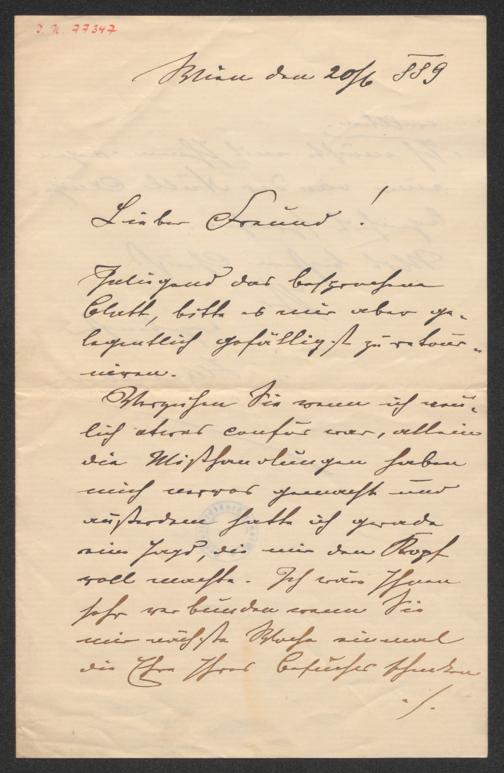 J. N. 77347
Wien den 20/6 889
Lieber Freund!
Inliegend das besprochene
Blatt, bitte es mir aber ge-
legentlich gefälligst zu retour-
niren.
Verzeihen Sie wenn ich neu-
lich etwas confus war, allein
die Mißhandlungen haben
mich nervos gemacht und
außerdem hatte ich gerade
eine Jagd, die mir den Kopf
voll machte. Ich wäre Ihnen
sehr verbunden wenn Sie
mir nächste Woche einmal
die Ehre Ihres Besuches schenken
./.